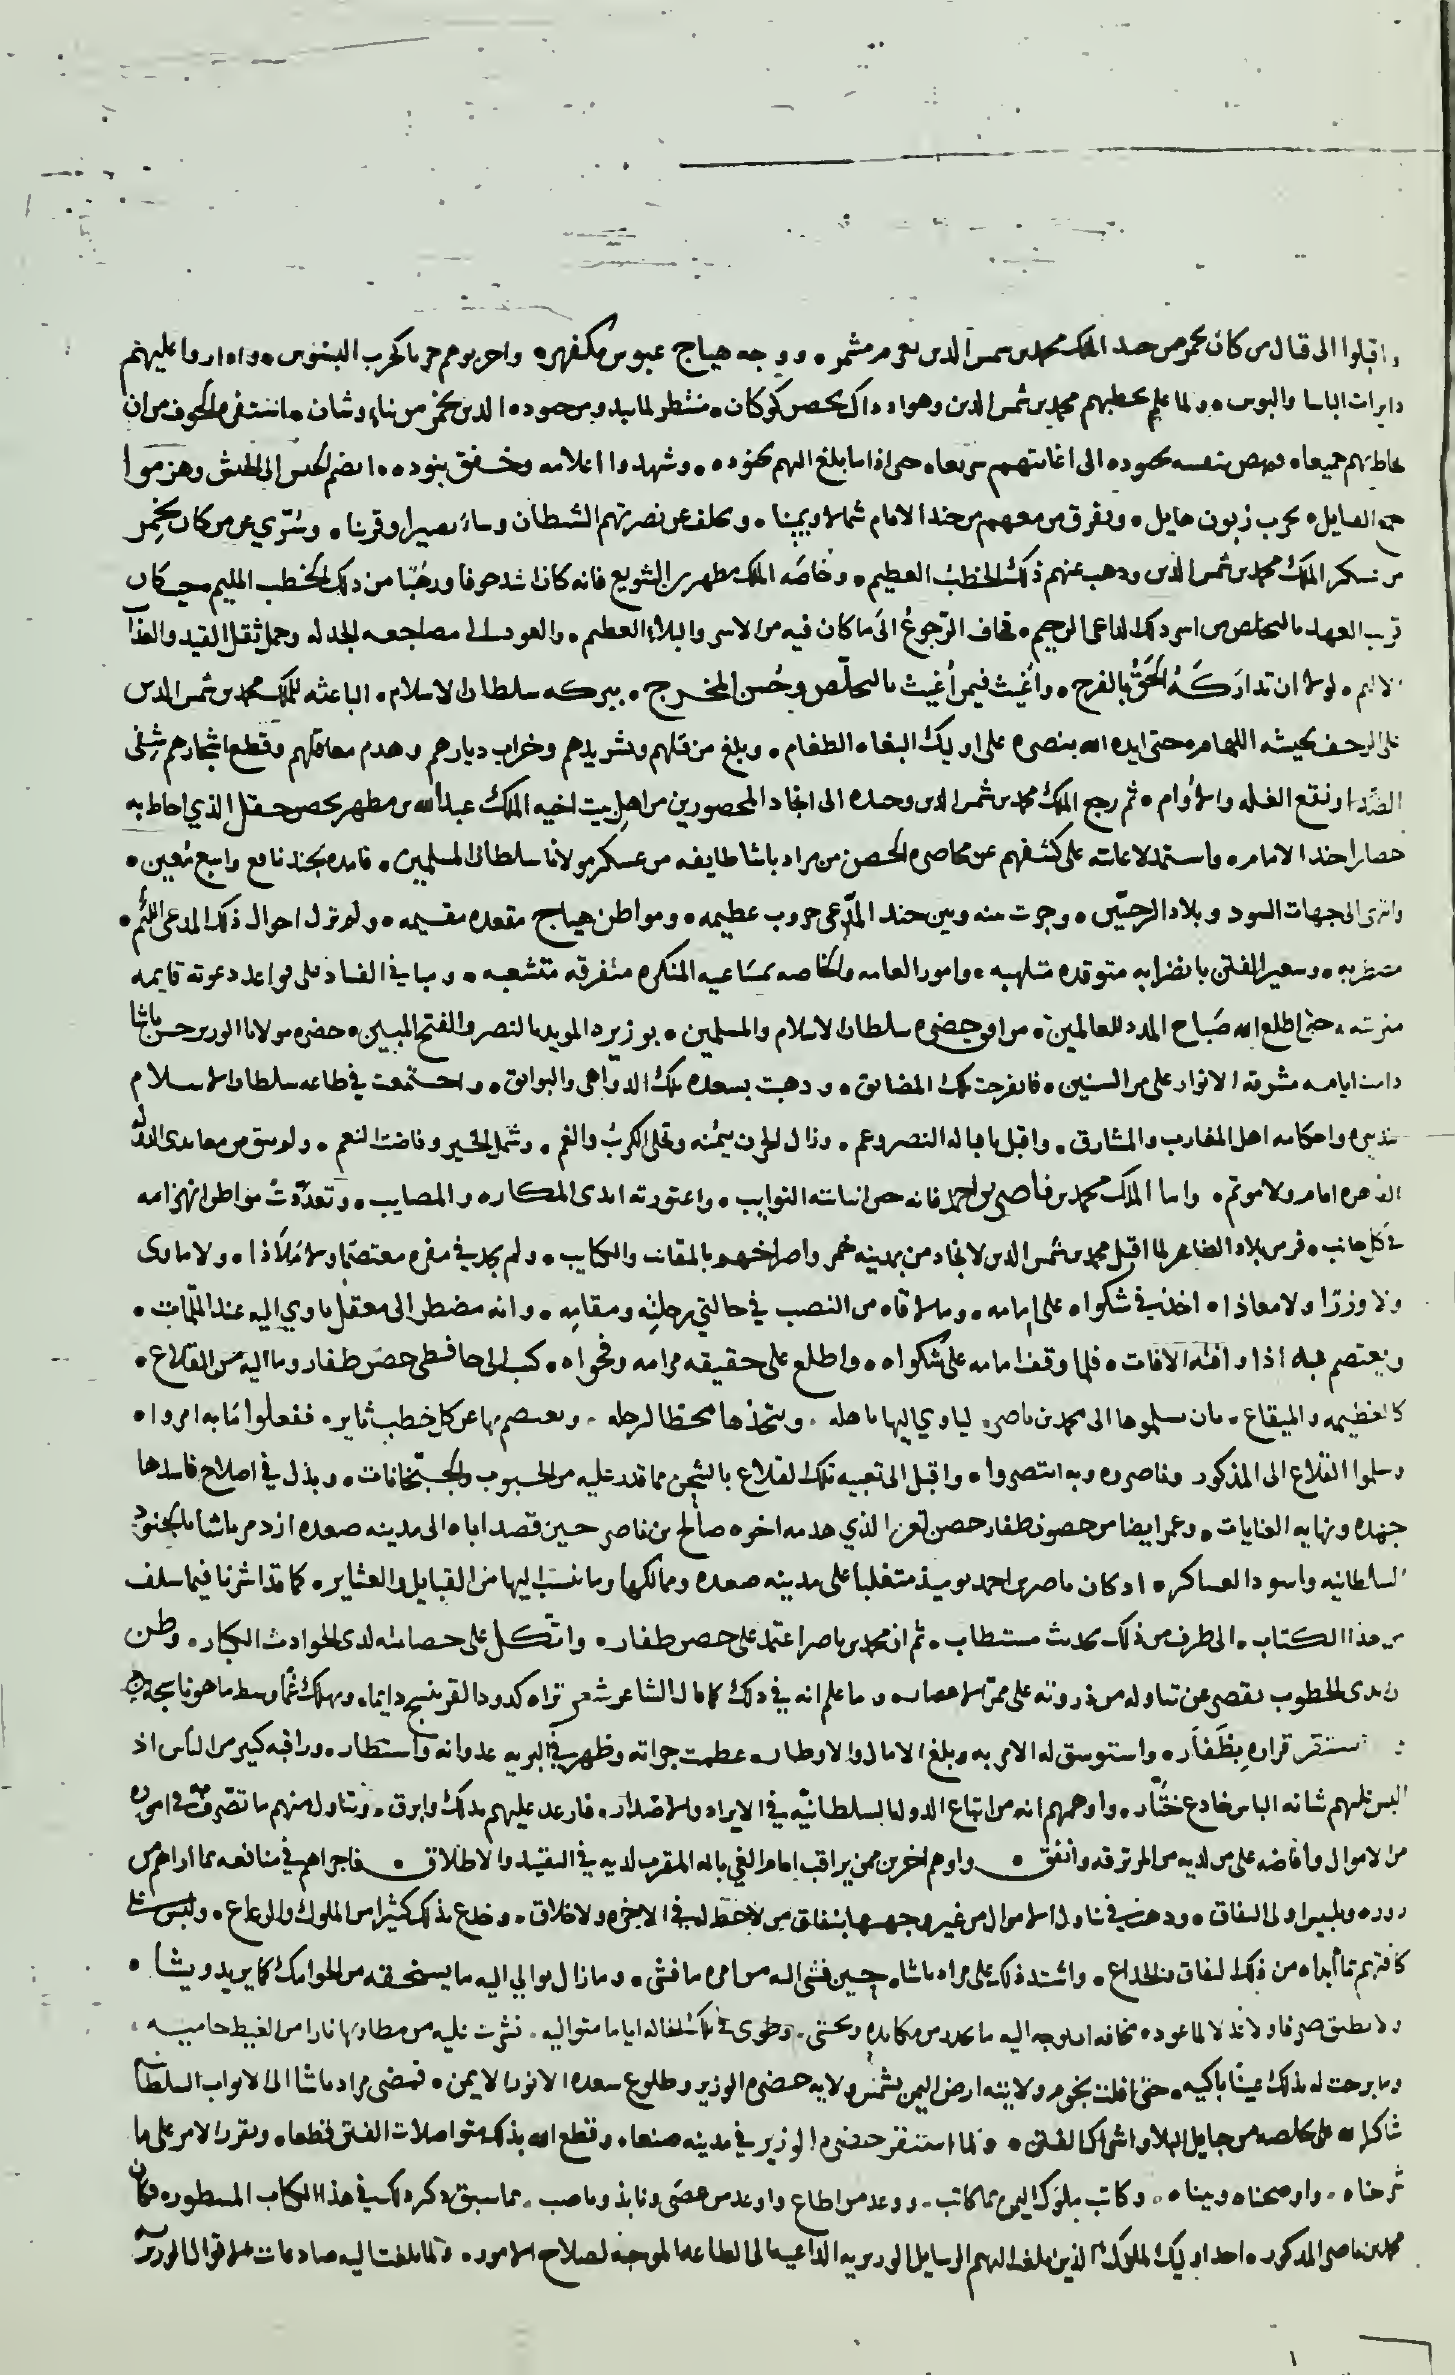 واقبلوا الى قتال من كان بخمر من جند الملك محمد بن شمس الدين بعزم مشمر ٥ ووجه هياج عبوس مكفهر ٥ واحربوهم حربا كحرب البسوس ٥ واداروا عليهم
دايرات الباسا والبوس ٥ ولما علم بخطبهم محمد بن شمس الدين وهو اذ ذاك بحصن كوكان ٥ منتظر لما يبدو من جنوده الذين بخمر من بناء وشان ٥ استشفى الخوف من ان
يحاط بهم جميعا ٥ نهض بنفسه بجنوده الى اغاثتهم سريعا ٥ حتى اذا ما بلغ اليهم بجنوده ٥ وشهدوا اعلامه وخفق بنوده ٥ انضم الجيش الى الجيش وهزموا
جمع الصايل ٥ بحرب زبون هايل ٥ وتفرق من معهم من جند الامام شمالا ويمينا ٥ وتخلف عن نصرتهم الشيطان وساء نصيرا وقرينا ٥ وسُرّي عن من كان بخمر
من عسكر الملك محمد بن شمس الدين وذهب عنهم ذلك الخطب العظيم ٥ وخاصه الملك مطهر بن الشويع فانه كان اشد خوفا ورعبا من ذلك الخطب المليم حيث كان
قريب العهد بالتخلص من اسر ذلك الداعي الرجيم ٥ فخاف الرجوع الى ما كان فيه من الاسر والبلاء العظيم ٥ والعود الى مضاجعه الجدله وحمل ثقل القيد والعذاب
الاليم ٥ لولا ان تداركه الحق بالفرج ٥ واغيث فيمن اُغيث بالتخلّص وحُسن المخرج ٥ ببركه سلطان الاسلام ٥ الباعثه للملك محمد بن شمس الدين
على الزحف بجيشه اللهام ٥ حتى ايده الله بنصره على اوليك البغاه الطغام ٥ وبلغ من قتلهم وتشريدهم وخراب ديارهم وهدم معاقلهم وقطع اشجارهم شفى
الصدا ونقع الغله والاوام ٥ ثم رجع الملك محمد بن شمس الدين وحده الى انجاد المحصورين من اهل بيت اخيه الملك عبدالله بن مطهر بحصن حقل الذي احاط به
حصارا جند الامام ٥ واستمد لاعانته على كشفهم عن محاصره الحصن من مراد باشا طايفه من عسكر مولانا سلطان المسلمين ٥ فامده بجند نافع واسع مُعين ٥
وانبرى الى جهات السود وبلاد الرحبتين ٥ وجرت منه وبين جند المدّعي حروب عظيمه ٥ ومواطن هياج مقعده مقيمه ٥ ولم تزل احوال ذلك المدعي اللئيم ٥
مضطربه ٥ وسعير الفتن باضرابه متوقده متلهبه ٥ وامور العامه والخاصه بمساعيه المنكره متفرقه متشعبه ٥ ومباني الفساد على قواعد دعوته قايمه
حتى اطلع الله صَباح المدد للعالمين ٥ من افق حضره سلطان الاسلام والمسلمين ٥ بوزيره المويد بالنصر والفتح المبين ٥ حضره مولانا الوزير حسن باشا
دامت ايامه مشرقة الانوار على مر السنين ٥ فانفرجت تلك المضايق ٥ وذهبت بسعده تلك الدواهي والبوايق ٥ واجتمعت في طاعه سلطان الاسلام
بتدبيره واحكامه اهل المغارب والمشارق ٥ واقبل باقباله النصر وعم ٥ وزال الحزن بيُمنه وتجلى الكربُ والغم ٥ وشمل الخير وفاضت النعم ٥ ولم يبق من معاندي الدوله
القاهره امام ولا موتم ٥ واما الملك محمد بن ناصر بن احمد فانه حين انتابته النوايب ٥ واعتورته ايدي المكاره والمصايب ٥ وتعدّدتْ مواطن انهزامه
في كل جانب ٥ فر من بلاد الظاهر لما اقبل محمد بن شمس الدين لانجاد من بمدينه خمر واصراخهم بالمقانب والكتايب ٥ ولم يجد في مفره معتصمًا ولا مَلاذا ٥ ولا ماوى
ولا وزرًا ولا معاذا ٥ اخذ في شكواه على امامه ٥ وما لاقاه من النصب في حالتي رحلته ومقامِه ٥ وانه مضطر الى معقل ياوي اليه عند الملمّات ٥
ويعتصم به اذا وافته الافات ٥ فلما وقف امامه على شكواه ٥ واطلع على حقيقه مرامه وفحواه ٥ كتب الى حافظي حصن ظفار وما اليه من القلاع ٥
كالعظيمه والميقاع ٥ بان يسلموها الى محمد بن ناصر ٥ لياوي اليها باهله ٥ ويتخذها محطا لرحله ٥ ويعتصم بها عن كل خطب ثاير ٥ ففعلوا مابه امروا ٥
وسلموا القلاع الى المذكور وناصروه وبه انتصروا ٥ واقبل الى تعبيه تلك القلاع بالشجن مما قدر عليه من الحبوب والجبخانات ٥ وبذل في اصلاح فاسدها
جهده ونهايه الغايات ٥ وعمر ايضا من حصون ظفار حصن تعز الذي هدمه اخوه صالح بن ناصر حين قصد اباه الى مدينه صعده ازدمر باشا بالجنود
السلطانيه واسود العساكر ٥ اذ كان ناصر بن احمد يوميذ متغلبا على مدينه صعده وممالكها وما نُسب اليها من القبايل والعشاير ٥ كما قد اشرنا فيما سلف
من هذا الكتاب ٥ الى طرف من ذلك بحديث مستطاب ٥ ثم ان محمد بن ناصر اعتمد على حصن ظفار ٥ واتّكل على حصانته لدى الحوادث الكبار ٥ وظن
ان يدى الخطوب تقصر عن تناوله من ذروته على ممرّ الاعصار ٥ وما علم انه في ذلك كما قال الشاعر شعر تراه كدود القز ينسج دايما ٥ ويهلك غمّا وسط ما هو ناسجه
استقر قراره بِظَفَار ٥ واستوسق له الامر به وبلغ الامال والاوطار ٥ عظمت جراته وظهر في البريه عدوانه واستطار ٥ وراقبه كثير من الناس اذ
البس عليهم شانه الباس خادع ختّار ٥ واوهمهم انه من اتباع الدوله السلطانيّه في الايراد والاصدار ٥ فارعد عليهم بذلك وابرق ٥ وتناول منهم ما تصرّف به في امره
من الاموال وافاضه على من لديه من المرتزقه وانفق ٥ واوهم اخرين ممن يراقب امام الغي بانه المقرب لديه في التقييد والاطلاق ٥ فاجراهم في منافعه بما اراهم من
زوره وتلبيس اولى النفاق ٥ وذهب في تناول الاموال من غير وجهها بنفاق من لاحظ له في الاخره ولا خلاق ٥ وخدع بذلك كثيرا من الملوك والرعاع ٥ ولبس على
كافتهم بما أبداه من ذلك النفاق والخداع ٥ واشتد ذلك على مراد باشا ٥ حين فشى اليه من امره ما فشى ٥ وما زال يوالي اليه ما يستحقه من الجوامك كما يريد ويشا ٥
ولا يطيق صرفا ولا عدلا لما عوده ٥ مخافه ان يوجه اليه ما يحذر من مكايده ويخشى ٥ وطوى في تلك الحاله اياما متواليه ٥ نشرت عليه من مطاويها نارا من الغيظ حاميه ٥
وما برحت له بذلك عينًا باكيه ٥ حتى افلت نجوم ولايته ارض اليمن بشمس ولايه حضره الوزير وطلوع سعده الانور الايمن ٥ فمضى مراد باشا الى الابواب السلطانيه
شاكرا لله على تخلصه من حبايل البلا واشراك الفتن ٥ ولما استقر حضره الوزير في مدينه صنعا ٥ وقطع الله بذلك متواصلات الفتن قطعا ٥ وتقرر الامر على ما
شرحناه ٥ واوضحناه وبيناه ٥ وكاتب ملوك اليمن بما كاتب ٥ ووعد من اطاع واوعد من عصى ونابذ وناصب ٥ بما سبق ذكر ذلك في هذا الكتاب المسطور ٥ فكان
محمد بن ناصر المذكور ٥ احد اوليك الملوك الذين بلغت اليهم الرسايل الوزيريه الداعيه الى الطاعه الموجبه لصلاح الامور ٥ ولما بلغت اليه صادعات الاقوال الوزيريه